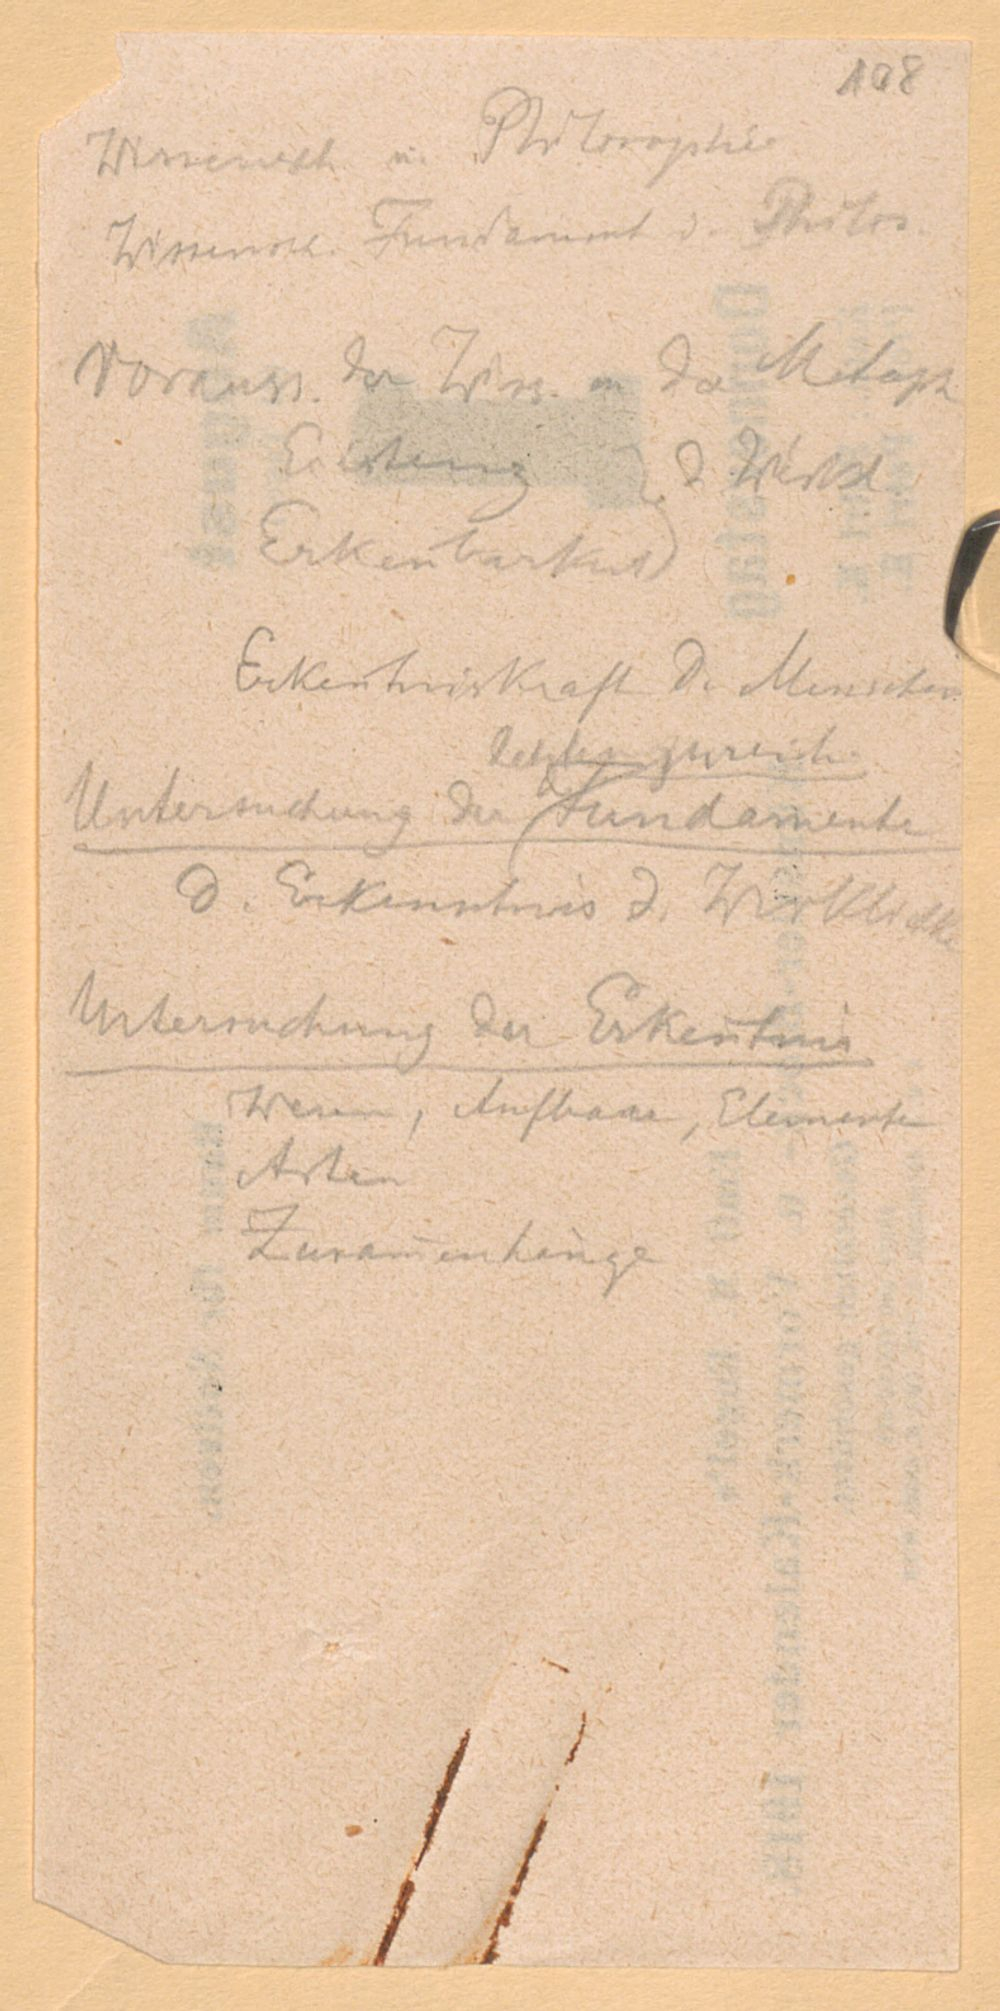 108
Wissensch. u. Philosophie
Wissensch. Fundament d. Philos.
Vorauss. der Wiss. u. der Metaph
Existenz } d. Wirkl
Erkenbarkeit }
Erkentniskraft d. Menschen
letzten zureich.
Untersuchung der Fundamente
d. Erkenntnis d. Wirklichke
Untersuchung der Erkentnis
Wesen, Aufbau, Elemente
Arten
Zusamenhänge